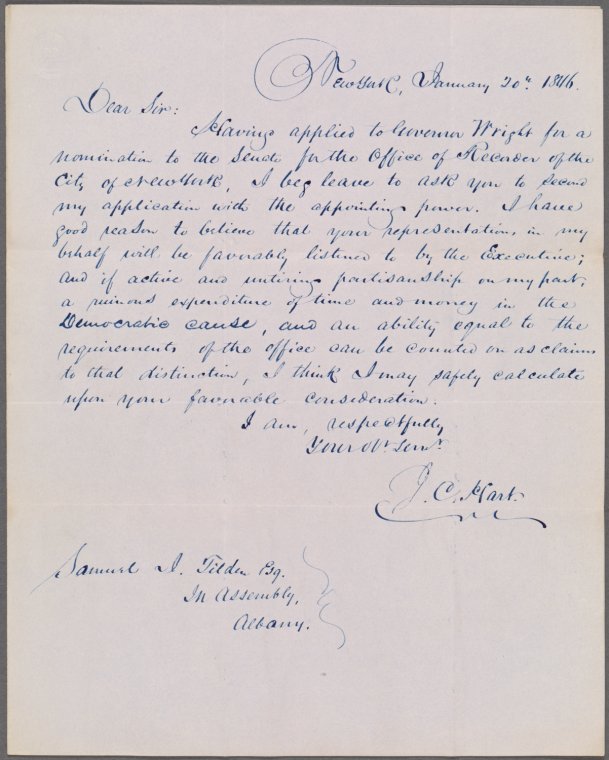 New York, January 20th 1846.
Dear Sir:
Having applied to Governor Wright for a
nomination to the Senate for the Office of Recorder of the
City of New York, I beg leave to ask you to second
my application with the appointing power. I have
good reason to believe that your representations in my
behalf will be favorably listened to by the Executive;
and if active and untiring partisanship on my part,
a ruinous expenditure of time and money in the
Democratic cause, and an ability equal to the
requirements of the office can be counted on as claims
to that distinction, I think I may safely calculate
upon your favorable consideration.
I am, respectfully
Your Obt Servt.
J. C. Hart.
Samuel J. Tilden Esq.
In Assembly,
Albany.